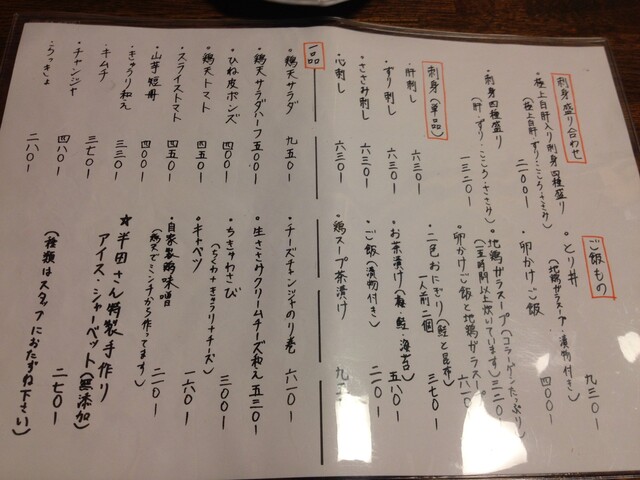 刺身盛り合わせ
・極上白肝入り刺身四種盛り
(極上白肝・ずり・こころ・ささみ)
二一〇〇ー
・刺身四種盛り
(肝・ずり・こころ・ささみ)
一三二〇ー
刺身(単品)
・肝刺し 六三〇ー
・ずり刺し 六三〇ー
・ささみ刺し 六三〇ー
・心刺し 六三〇ー
ご飯もの
・とり丼 九三〇ー
(地鶏ガラスープ・漬物付き)
・卵かけご飯 四〇〇ー
・地鶏ガラスープ(コラーゲンたっぷり)
(五時間以上炊いています) 三二〇ー
・卵かけご飯と地鶏ガラスープ
六一〇ー
・二色おにぎり(鮭と昆布)
一人前二個 三七〇ー
・お茶漬け(梅・鮭・海苔)
五八〇ー
・ご飯(漬物付き) 二一〇ー
・鶏スープ茶漬け
一品
・鶏天サラダ 九五〇ー
・鶏天サラダハーフ 五〇〇ー
・ひね皮ポンズ 四〇〇ー
・鶏天トマト 四五〇ー
・スライストマト 四五〇ー
・山芋短冊 四〇〇ー
・きゅうり和え 三三〇ー
・キムチ 三七〇ー
・チャンジャ 四八〇ー
・らっきょ 二八〇ー
・チーズチャンジャのり巻 六八〇ー
・生ささみクリームチーズ和え 五三〇ー
・ちきゅわさび 三〇〇ー
(ちくわ+きゅうり+チーズ)
・キャベツ 一六〇ー
・自家製鶏味噌 二一〇ー
(鶏叉でミンチから作ってます)
★半田さん特製手作り
アイス・シャーベット(無添加)
二七〇ー
(種類はスタッフにおたずね下さい)